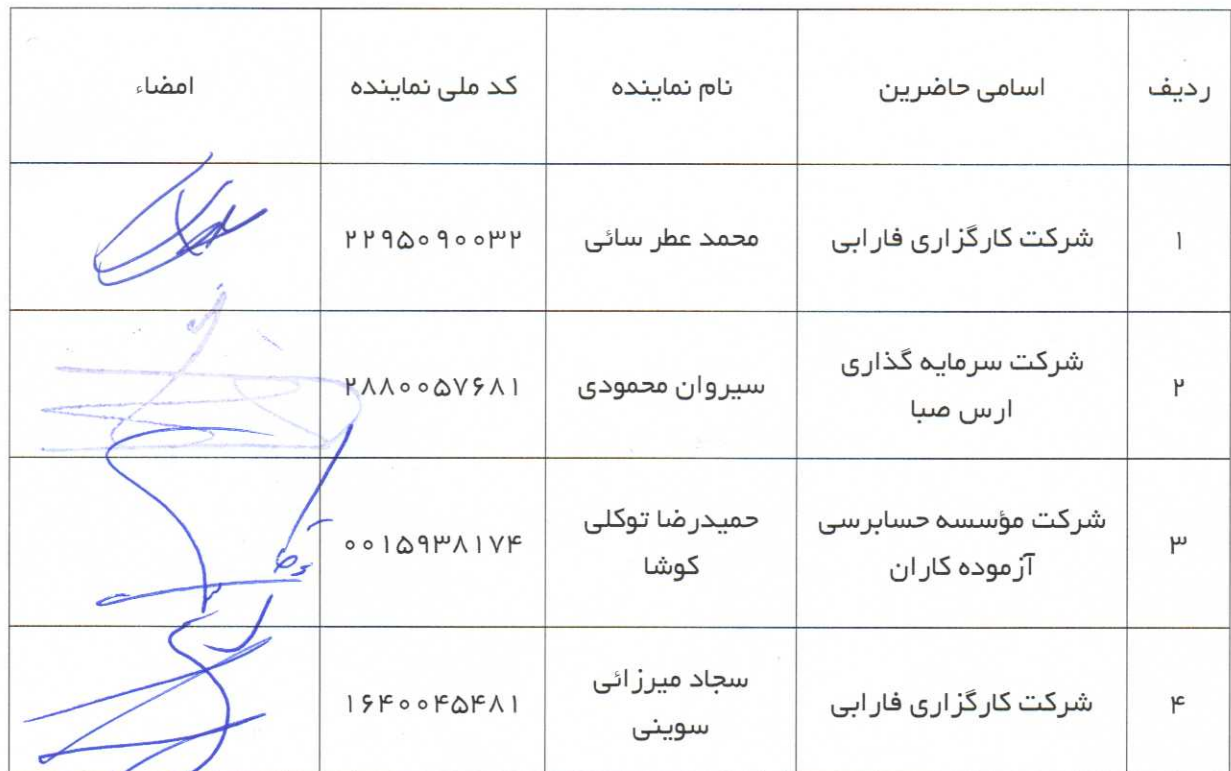 ردیف اسامی حاضرین نام نماینده کد ملی نماینده امضاء
۱ شرکت کارگزاری فارابی محمد عطر سائی ۲۲۹۵۰۹۰۰۳۲
۲ شرکت سرمایه گذاری ارس صبا سیروان محمودی ۲۸۸۰۰۵۷۶۸۱
۳ شرکت مؤسسه حسابرسی آزموده کاران حمیدرضا توکلی کوشا ۰۰۱۵۹۳۸۱۷۴
۴ شرکت کارگزاری فارابی سجاد میرزائی سوینی ۱۶۴۰۰۴۵۴۸۱